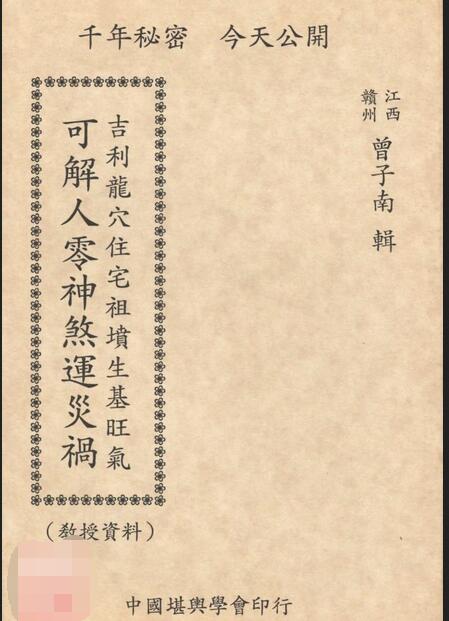 千年秘密　今天公開
江西
贛州
曾子南　輯
吉利龍穴住宅祖墳生基旺氣
可解人零神煞運災禍
（敎授資料）
中國堪輿學會印行